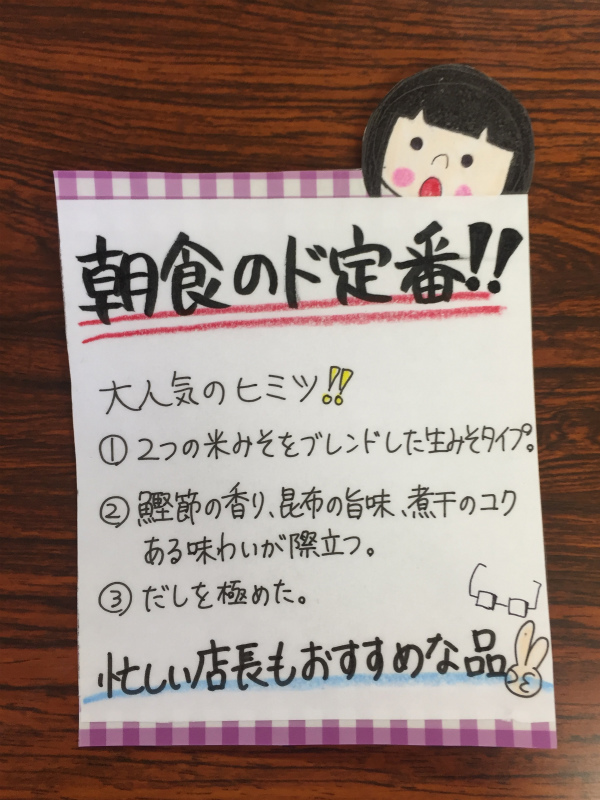 朝食のド定番!!
大人気のヒミツ!!
① 2つの米みそをブレンドした生みそタイプ。
② 鰹節の香り、昆布の旨味、煮干のコク
ある味わいが際立つ。
③ だしを極めた。
忙しい店長もおすすめな品